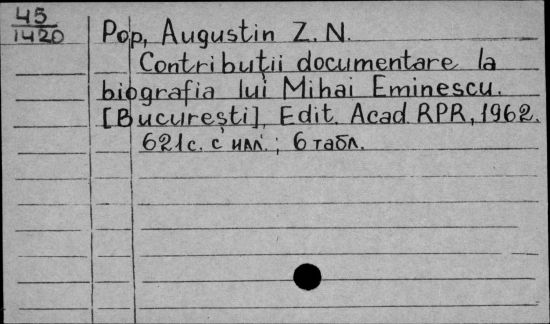 45
1420
Pop, Augustin Z. N.
Contribuții documentare la
biografia lui Mihai Eminescu.
[București], Edit. Acad. RPR, 1962.
621 с. с илл.; 6 табл.